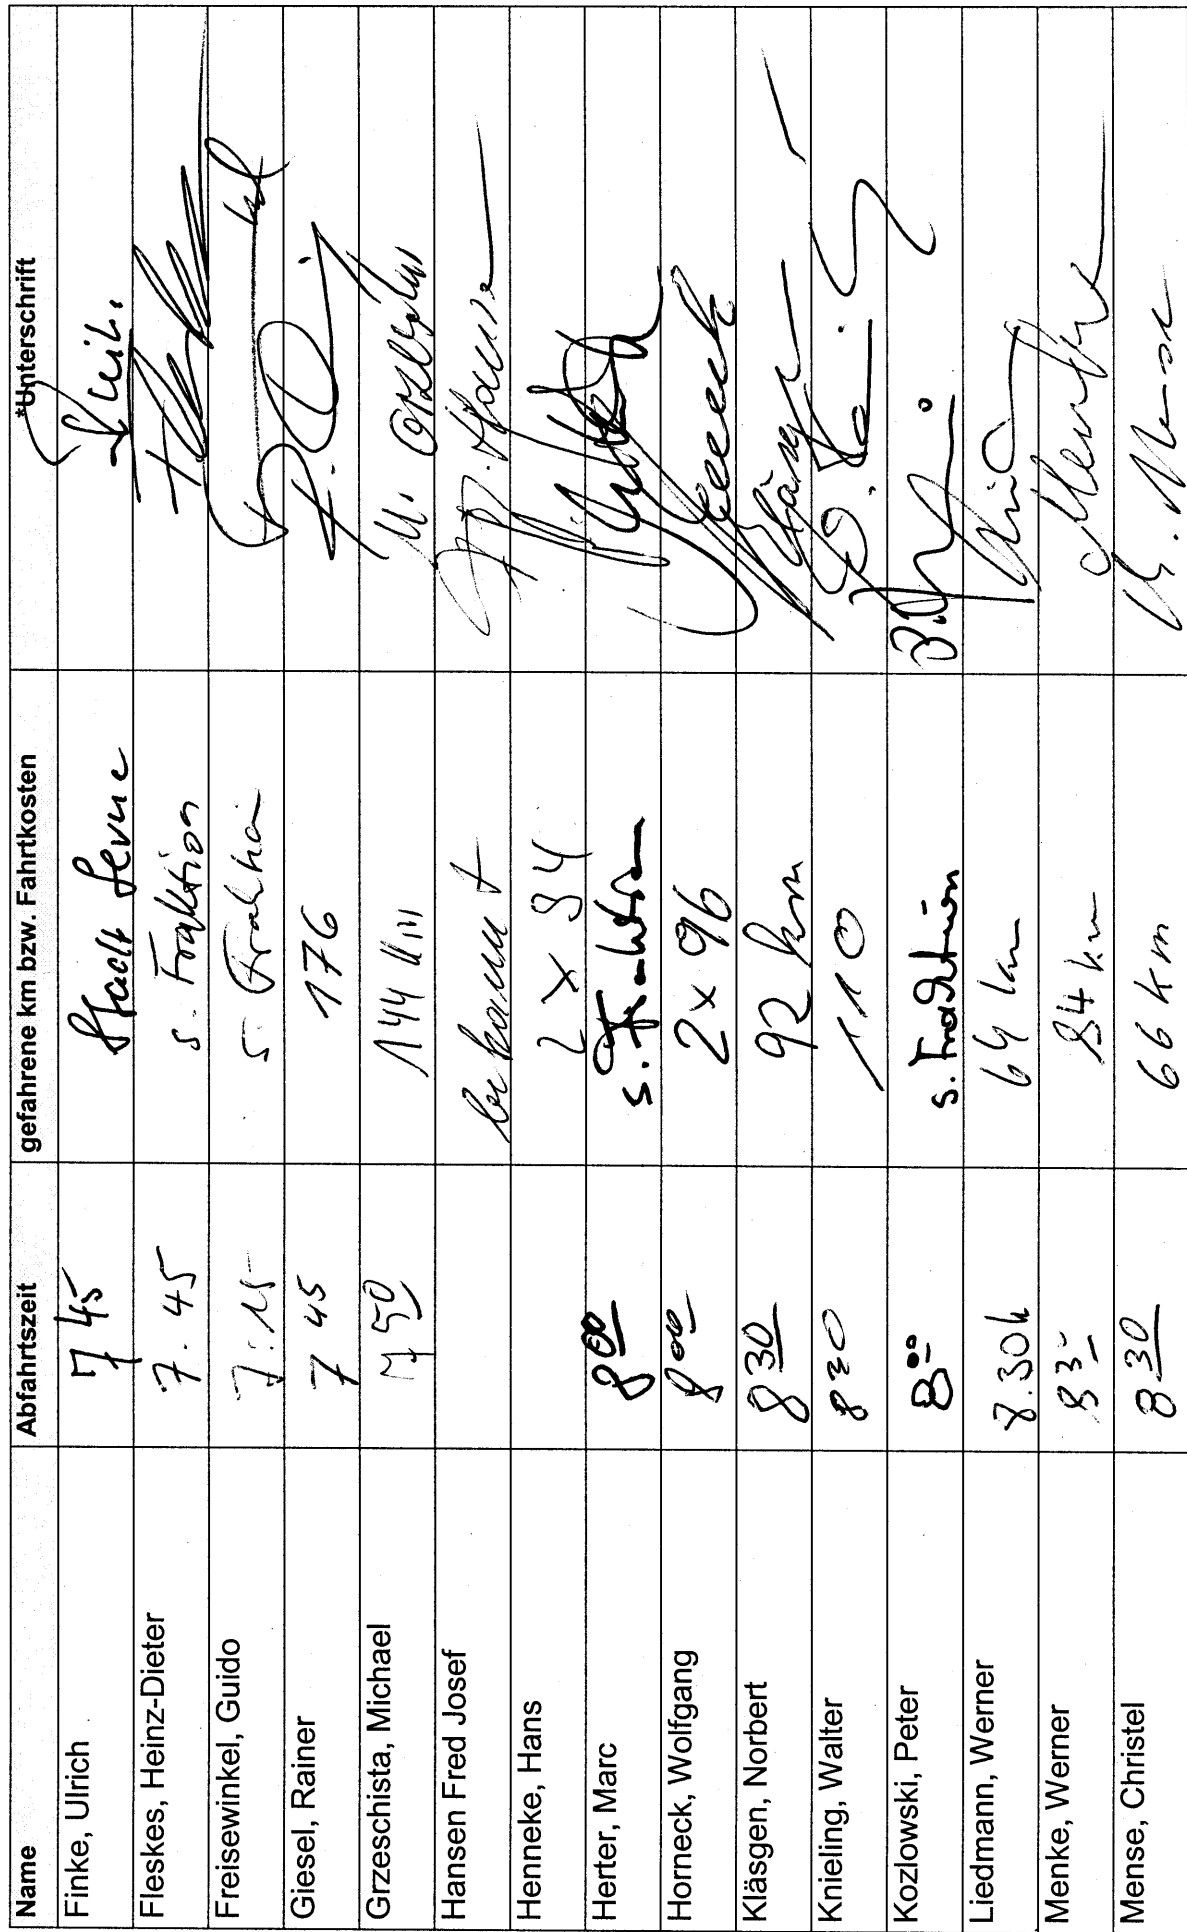 Name Abfahrtszeit gefahrene km bzw. Fahrtkosten *Unterschrift
Finke, Ulrich 7 45 Stadt
Fleskes, Heinz-Dieter 7.45 s. Fraktion
Freisewinkel, Guido 7:15 s. Fraktion
Giesel, Rainer 7 45 176
Grzeschista, Michael 7 50 144 km M.
Hansen Fred Josef bekannt
Henneke, Hans 2 x 94
Herter, Marc 8 00 s. Fraktion
Horneck, Wolfgang 8 00 2 x 96
Kläsgen, Norbert 8 30 92 km Kläsgen
Knieling, Walter 8 20 110
Kozlowski, Peter 8 00 s. Fraktion
Liedmann, Werner 7.30h 64 km
Menke, Werner 8 3- 84 km Menke
Mense, Christel 8 30 66 km Ch. Mense